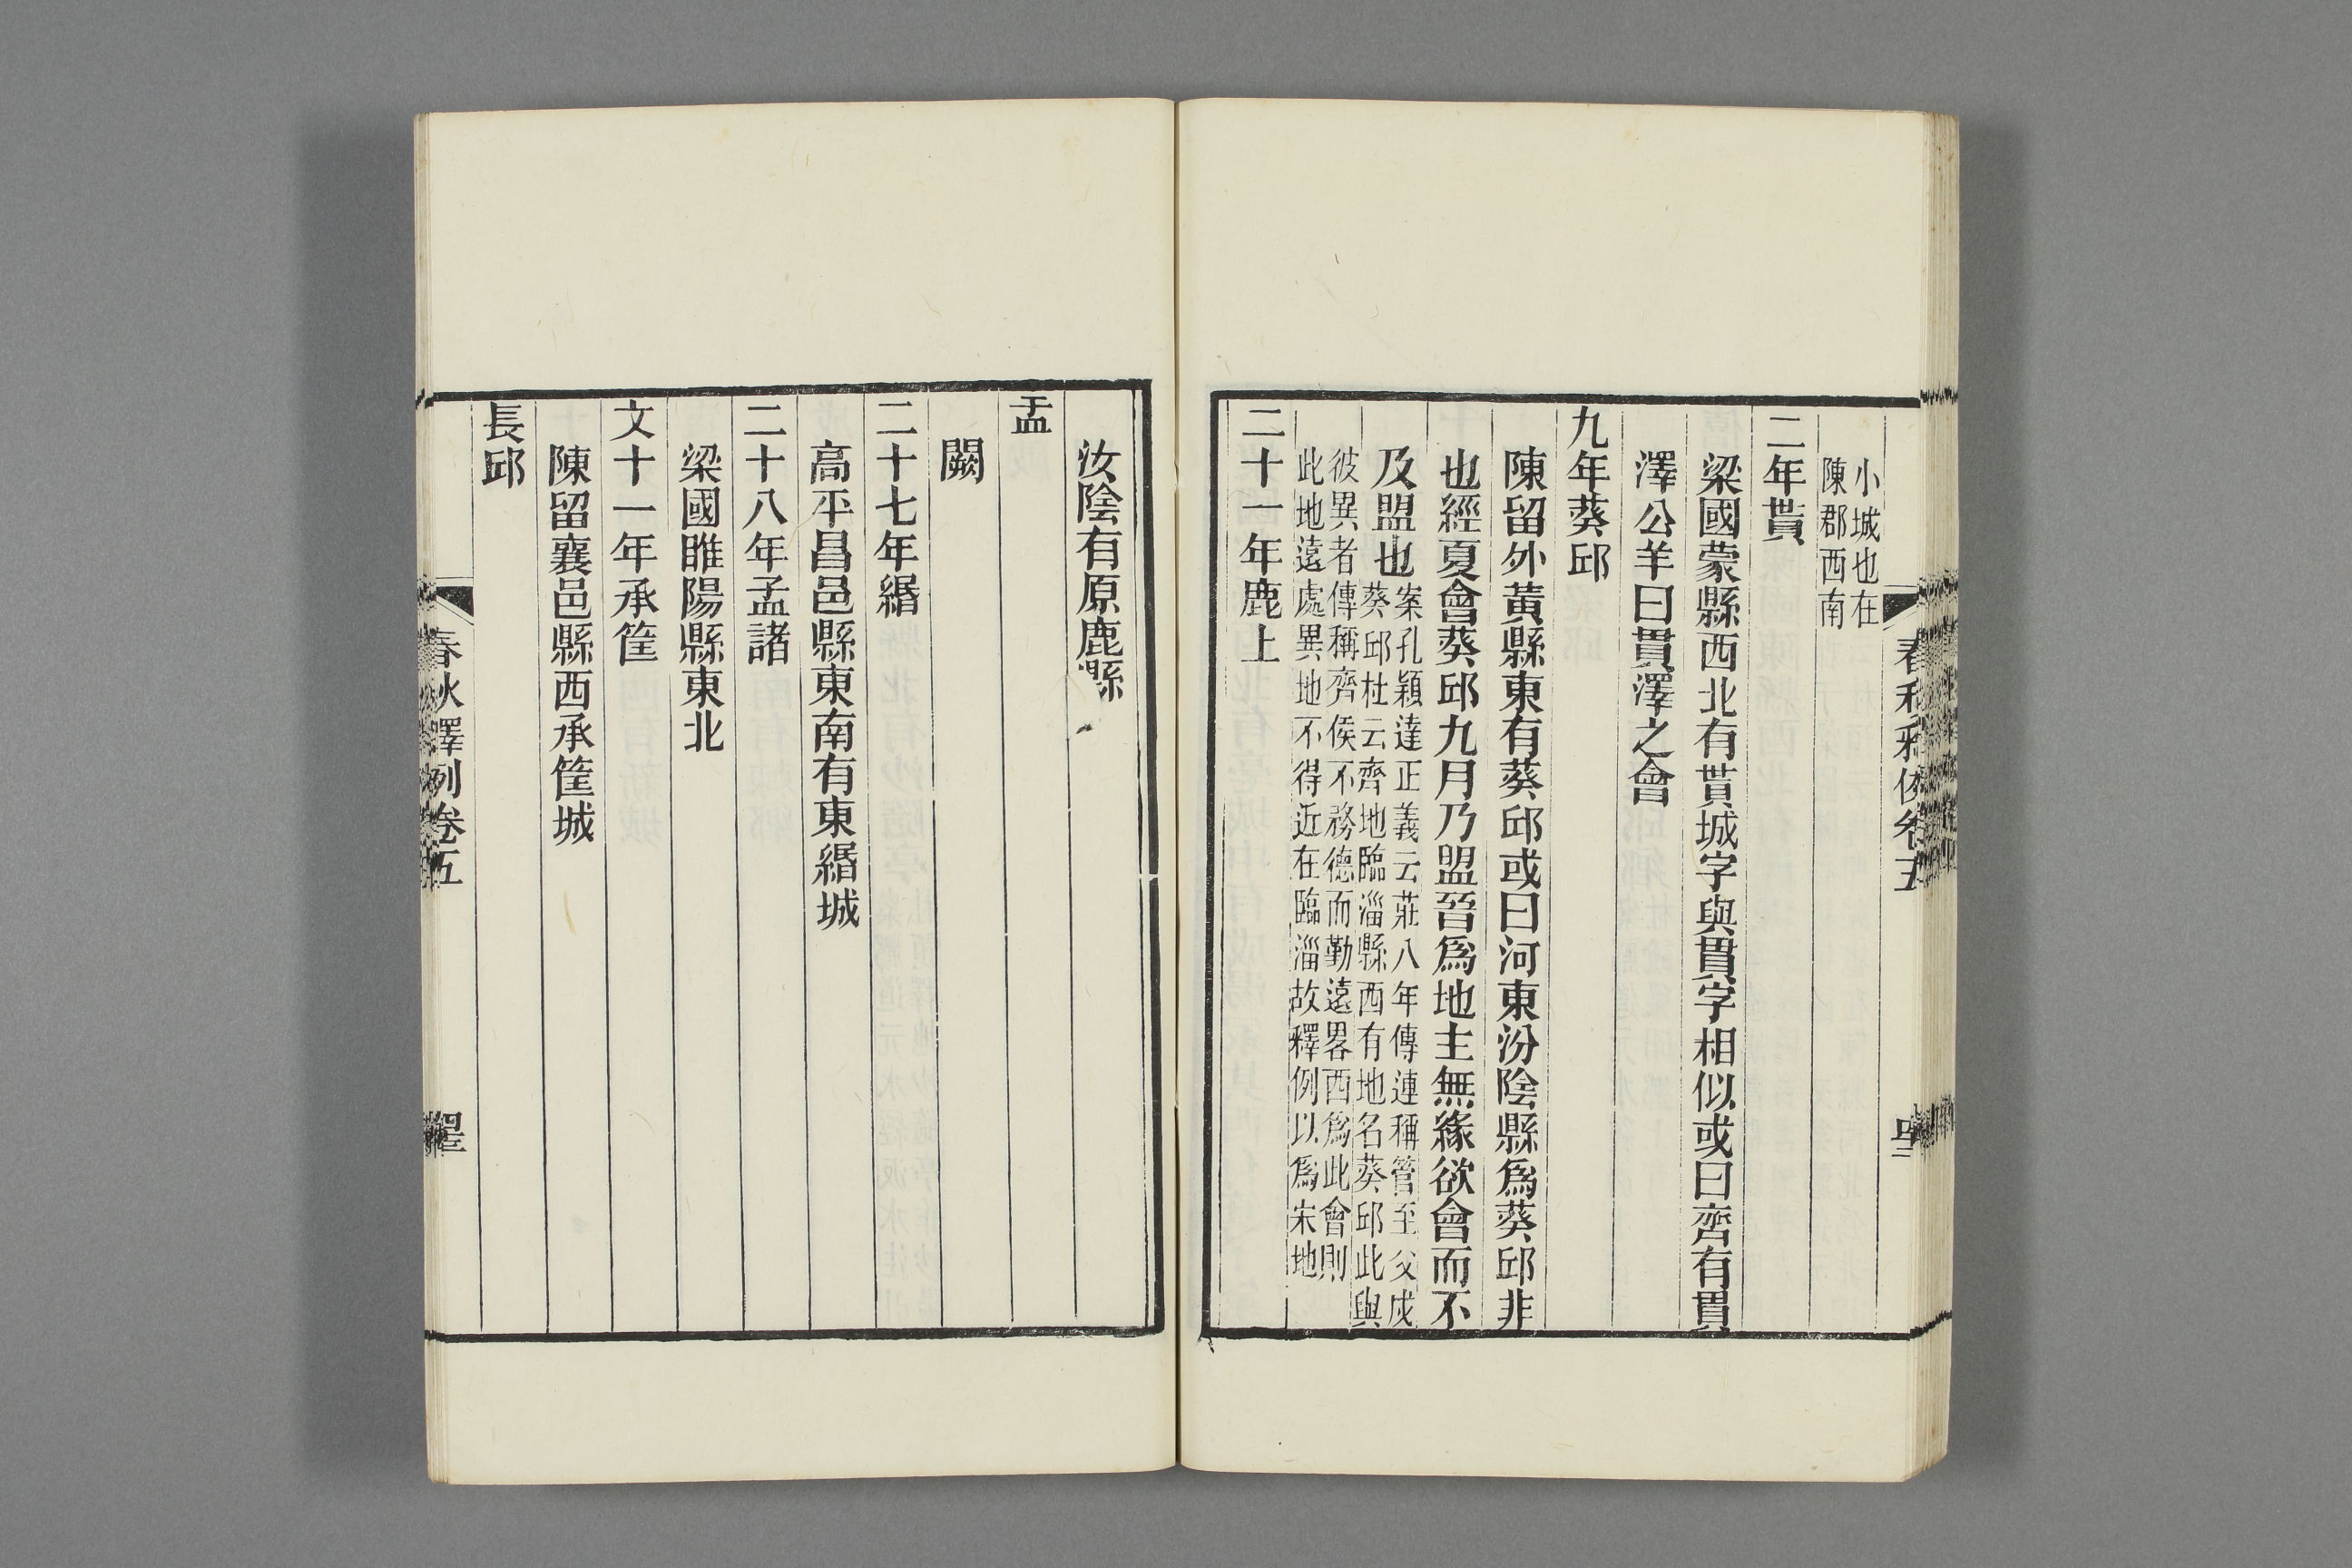 小城也在
陳郡西南
二年貰
梁國蒙縣西北有貰城字與貫字相似或曰齊有貫
澤公羊曰貫澤之會
九年葵邱
陳留外黃縣東有葵邱或曰河東汾陰縣爲葵邱非
也經夏會葵邱九月乃盟晉爲地主無緣欲會而不
及盟也案孔穎達正義云莊八年傳連稱管至父戍
葵邱杜云齊地臨淄縣西有地名葵邱此與
彼異者傳稱齊侯不務德而勤遠畧西爲此會則
此地遠處異地不得近在臨淄故釋例以爲宋地
二十一年鹿上
汝陰有原鹿縣
盂
闕
二十七年緡
高平昌邑縣東南有東緡城
二十八年孟諸
梁國睢陽縣東北
文十一年承筐
陳留襄邑縣西承筐城
長邱
春秋釋例卷五